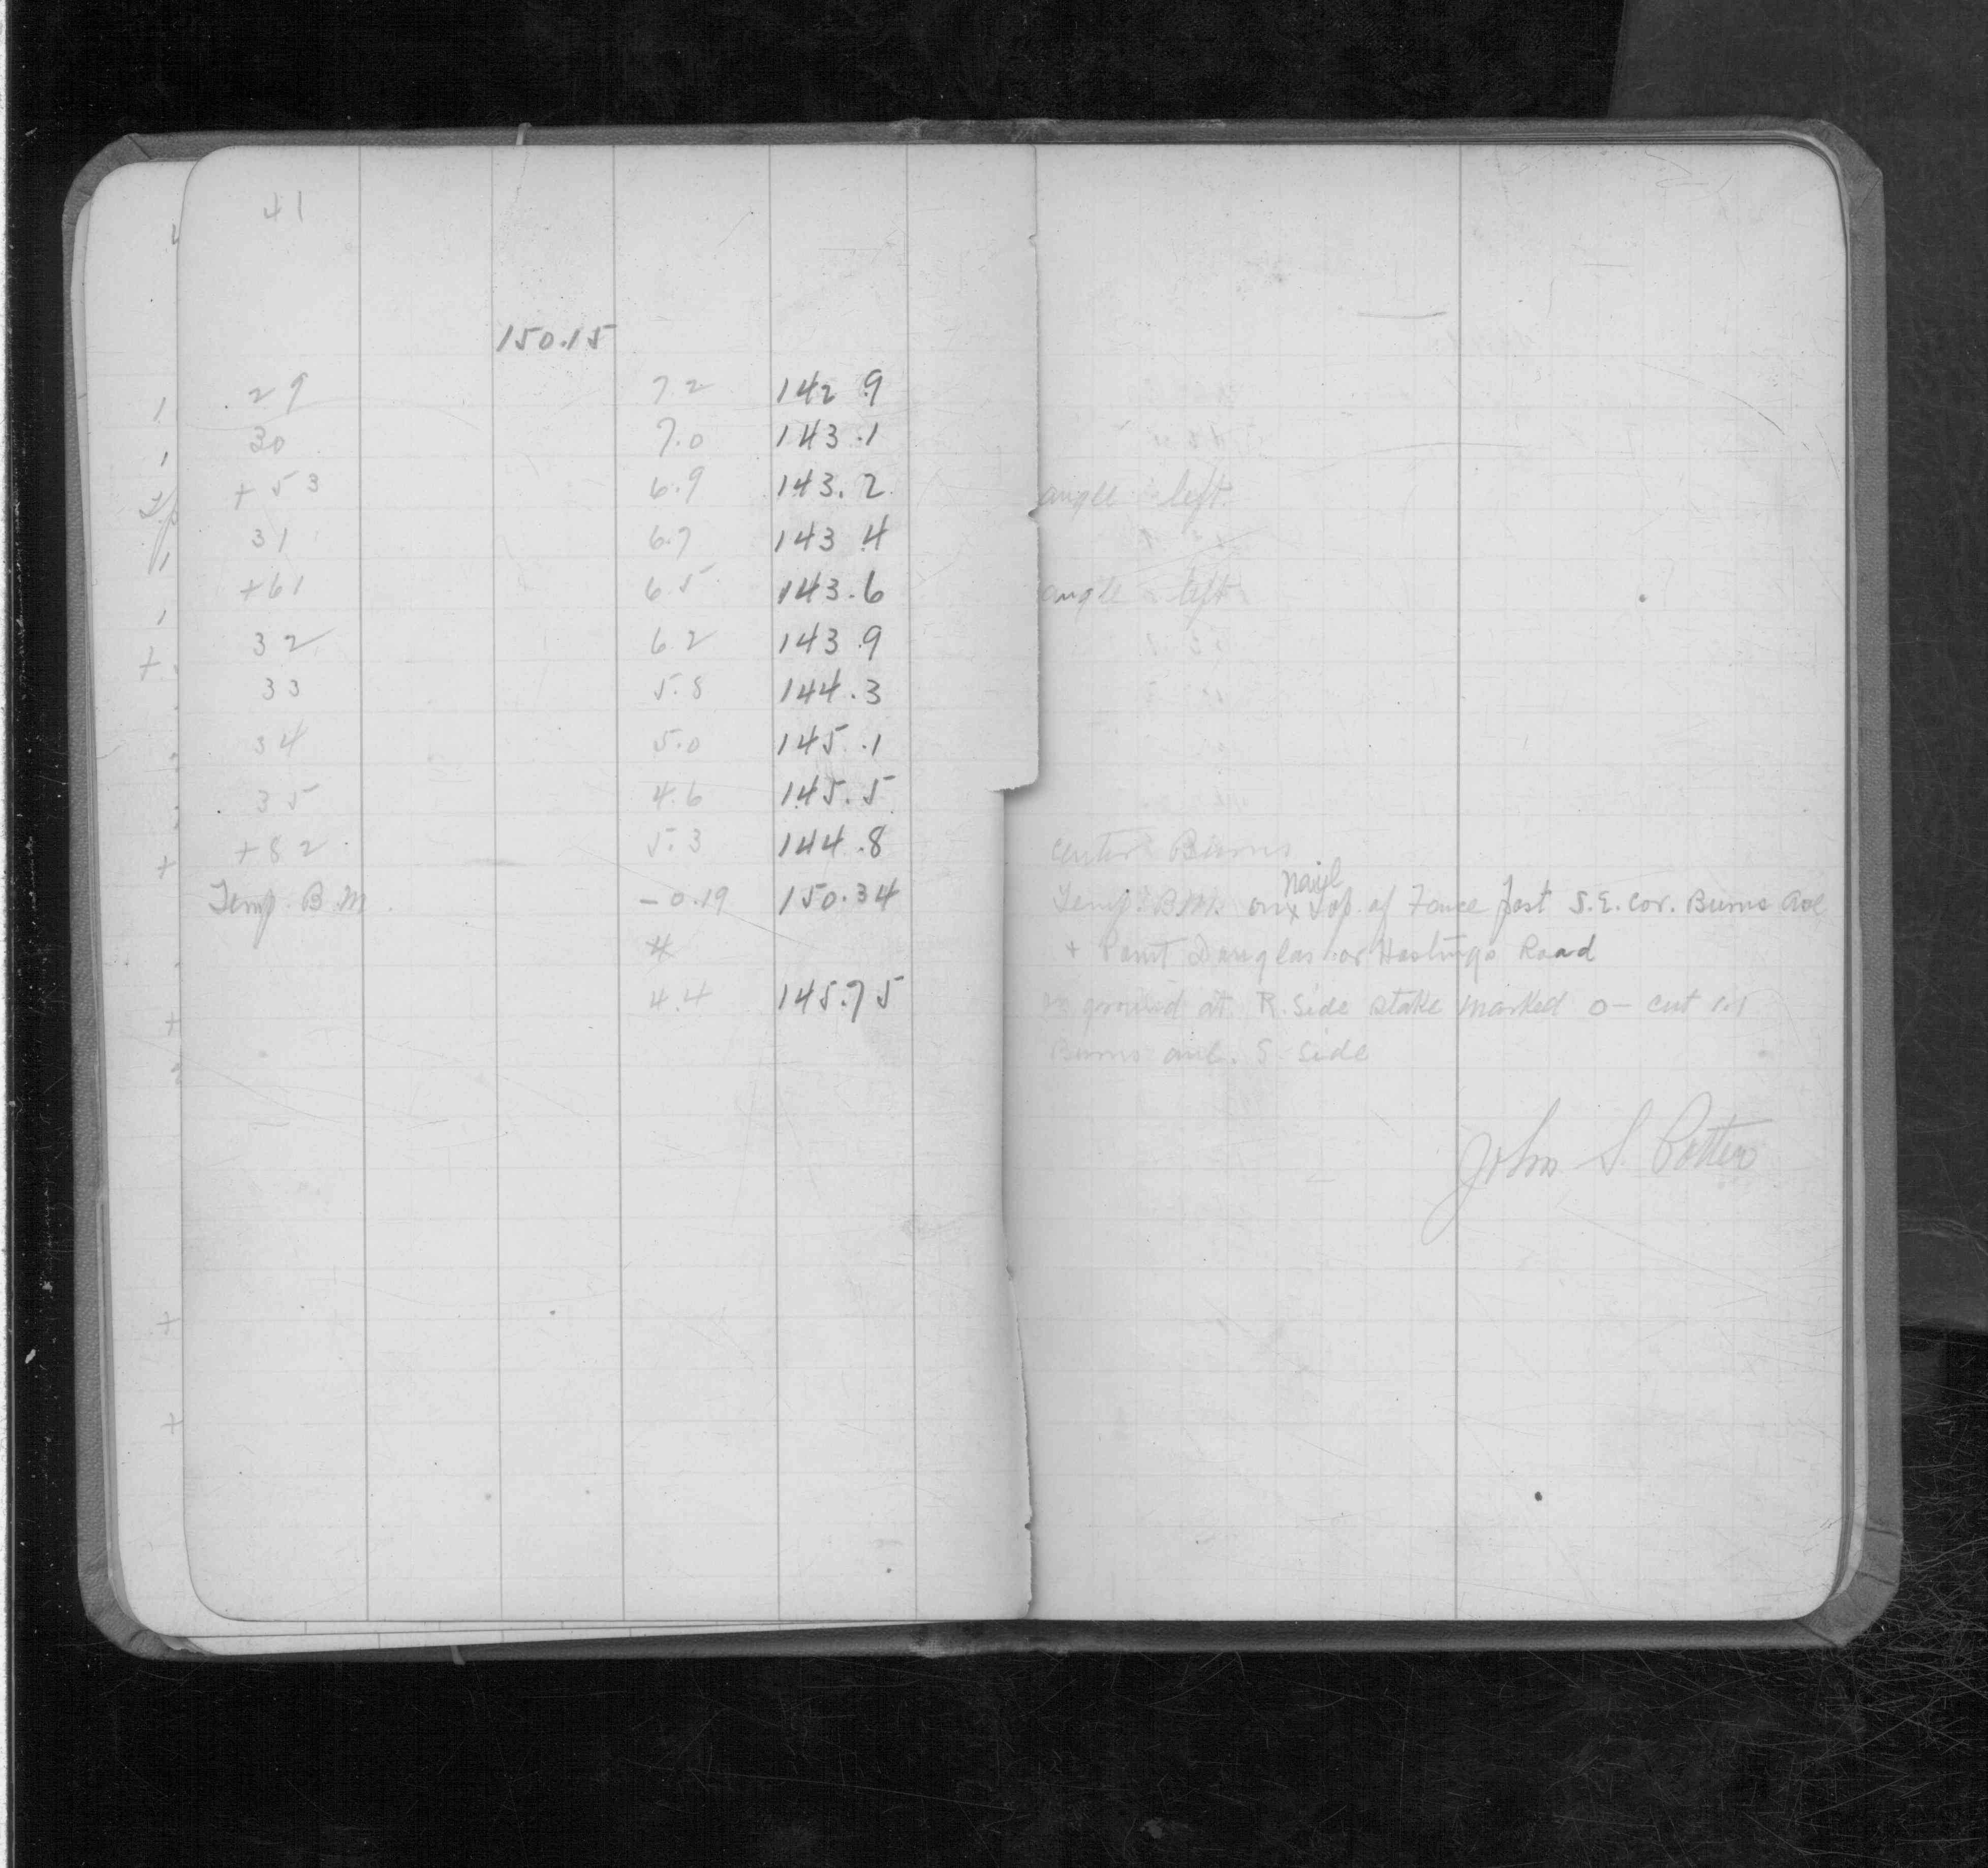 41
150.15
29 7.2 142.9
30 7.0 143.1
+53 6.9 143.2 angle left
31 6.7 143.4
+61 6.5 143.6 angle left
32 6.2 143.9
33 5.8 144.3
34 5.0 145.1
35 4.6 145.5
+82 5.3 144.8 center Burns
Temp. B.M. -0.19 150.34 Temp. B.M. on x nail top of Fence post S.E. cor. Burns Ave
+ Point Douglas or Hastings Road
4.4 145.75 ground at R. Side stake marked 0 - cut 1.1
Burns ave. S. Side
John S. Potter